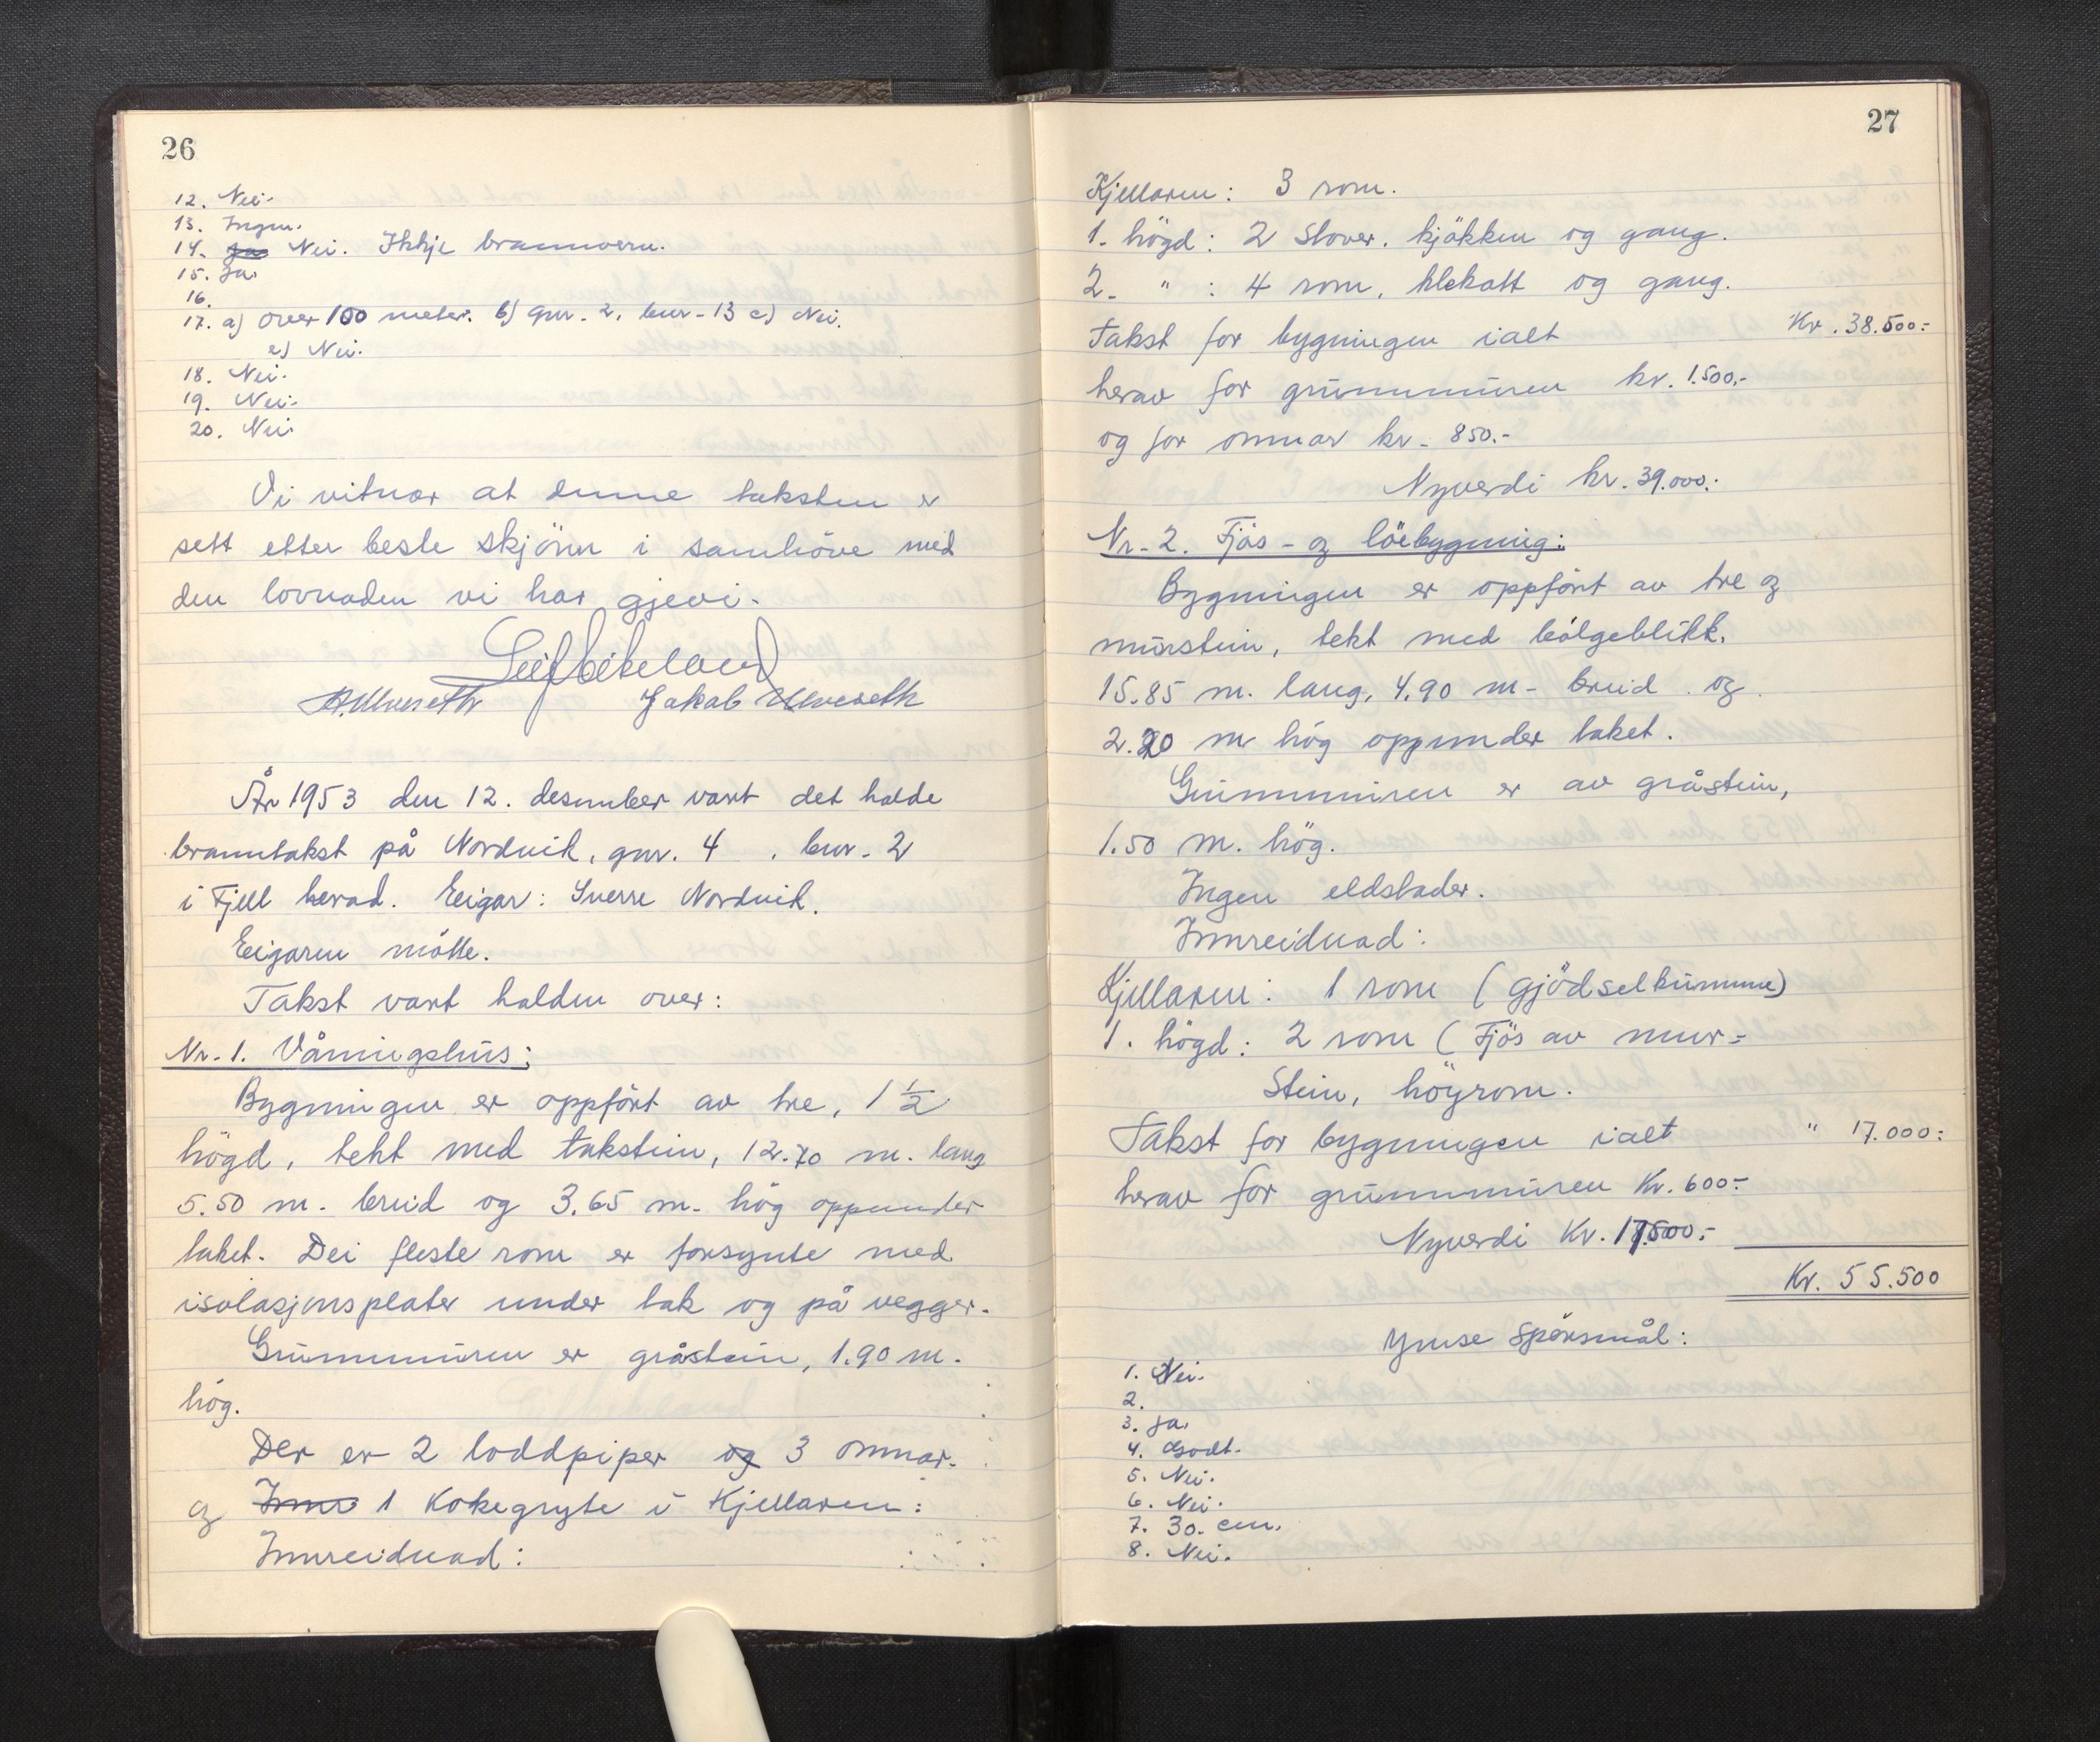 26
12. Nei.
13. Ingen.
14. Ja Nei. Ikkje brannvern.
15. Ja.
16.
17. a) over 100 meter. b) gnr. 2, bnr. 13 c) Nei.
e) Nei.
18. Nei.
19. Nei.
20. Nei.
Vi vitnar at denne taksten er
sett etter beste skjönn i samhöve med
den lovnaden vi har gjevi.
Leif Eikeland
Jakob Ulveseth
År 1953 den 12. desember vart det halde
branntakst på Nordvik, gnr. 4 , bnr. 2
i Fjell herad. Eigar: Sverre Nordvik.
Eigaren mötte.
Takst vart halden over:
Nr. 1. Våningshus:
Bygningen er oppfört av tre, 1 1/2
högd, tekt med takstein, 12.70 m. lang
5.50 m. breid og 3.65 m. hög oppunder
taket. Dei fleste rom er forsynte med
isolasjonsplater under tak og på vegger.
Grunnmuren er gråstein, 1.90 m.
hög.
Der er 2 loddpiper og 3 omnar.
og Innr 1 Kokegryte i Kjellaren:
Innreidnad:
27
Kjellaren: 3 rom.
1. högd: 2 stover, kjökken og gang.
2. " : 4 rom, klekott og gang.
Takst for bygningen ialt Kr. 38.500.-
herav for grunnmuren kr. 1.500.-
og for omnar kr. 850.-
Nyverdi kr. 39.000.-
Nr. 2. Fjös- og löebygning:
Bygningen er oppfört av tre og
murstein, tekt med bölgeblikk.
15.85 m. lang, 4.90 m. breid og
2.20 m hög oppunder taket.
Grunnmuren er av gråstein,
1.50 m. hög.
Ingen eldstader.
Innreidnad:
Kjellaren: 1 rom (gjödselkumme)
1. högd: 2 rom (Fjös av mur-
stein, höyrom.
Takst for bygningen ialt " 17.000.-
herav for grunnmuren Kr. 600.-
Nyverdi Kr. 17.500.-
Kr. 55.500
Ymse Spörsmål:
1. Nei.
2.
3. Ja.
4. Godt.
5. Nei.
6. Nei.
7. 30. cm.
8. Nei.